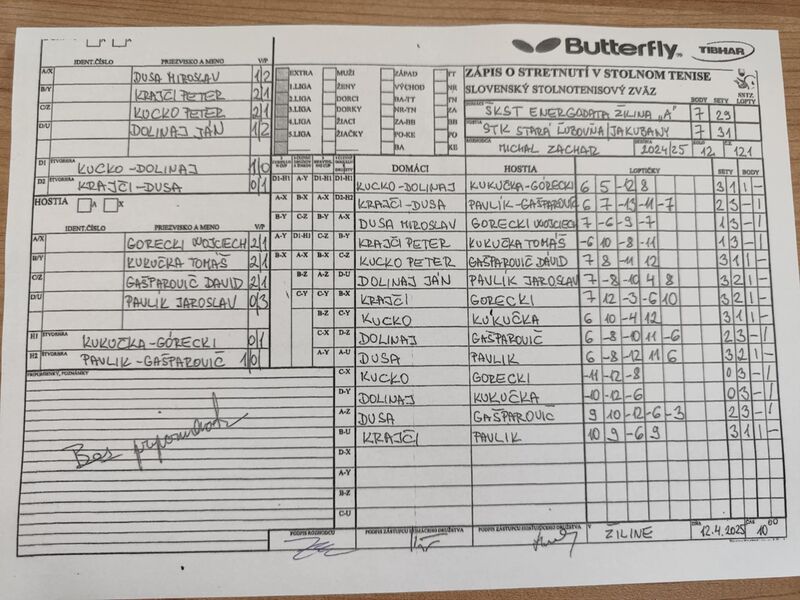 Butterfly
TIBHAR
IDENT.ČÍSLO PRIEZVISKO A MENO V/P
A/X DUSA MIROSLAV 1 2
B/Y KRAJČÍ PETER 2 1
C/Z KUCKO PETER 2 1
D/U DOLINAJ JÁN 1 2
D1 ŠTVORHRA KUCKO-DOLINAJ 1 0
D2 ŠTVORHRA KRAJČI-DUSA 0 1
HOSTIA A X
IDENT.ČÍSLO PRIEZVISKO A MENO V/P
A/X GORECKI WOJCIECH 2 1
B/Y KUKUČKA TOMÁŠ 2 1
C/Z GAŠPAROVIČ DAVID 2 1
D/U PAVLÍK JAROSLAV 0 3
H1 ŠTVORHRA KUKUČKA-GÓRECKI 0 1
H2 ŠTVORHRA PAVLIK-GAŠPAROVIČ 1 0
PRIPOMIENKY, POZNÁMKY
Bez pripomienok
EXTRA MUŽI ZÁPAD TT
1.LIGA ŽENY VÝCHOD NR
2.LIGA DORCI BA-TT TN
3.LIGA DORKY NR-TN ZA
4.LIGA ŽIACI ZA-BB BB
5.LIGA ŽIAČKY PO-KE PO
BA KE
ZÁPIS O STRETNUTÍ V STOLNOM TENISE
SLOVENSKÝ STOLNOTENISOVÝ ZVÄZ
BODY SETY LOPTY
ŠKST ENERGODATA ŽILINA „A" 7 29
STK STARÁ ĽUBOVŇA JAKUBANY 7 31
ROZHODCA MICHAL ZACHAR 2024/25 12 121
DOMÁCI HOSTIA LOPTIČKY SETY BODY
D1-H1 A-Y D1-H1 D1-H1 KUCKO-DOLINAJ KUKUČKA-GÓRECKI 6 5 -12 8 3 1 1 -
A-X B-X A-X D2-H2 KRAJČI-DUSA PAVLÍK-GAŠPAROVIČ 6 7 -13 -11 -7 2 3 - 1
B-Y C-Z B-Y A-X DUSA MIROSLAV GORECKI WOJCIECH 7 -6 -9 -7 1 3 - 1
A-Y D1-H1 C-Z B-Y KRAJČI PETER KUKUČKA TOMÁŠ -6 10 -8 -11 1 3 - 1
B-X A-X B-X C-Z KUCKO PETER GAŠPAROVIČ DÁVID 7 8 -11 12 3 1 1 -
B-Z A-Z D-U DOLINAJ JÁN PAVLÍK JAROSLAV 7 -8 -10 4 8 3 2 1 -
C-Y C-Y B-X KRAJČÍ GORECKI 7 12 -3 -6 10 3 2 1 -
B-Z C-Y KUCKO KUKUČKA 6 10 -4 12 3 1 1 -
C-X D-Z DOLINAJ GAŠPAROVIČ 6 -8 -10 11 -6 2 3 - 1
A-Y A-U DUSA PAVLIK 6 -8 -12 11 6 3 2 1 -
C-X KUCKO GORECKI -11 -12 -8 0 3 - 1
D-Y DOLINAJ KUKUČKA -10 -12 -6 0 3 - 1
A-Z DUSA GAŠPAROVIČ 9 10 -12 -6 -3 2 3 - 1
B-U KRAJČÍ PAVLIK 10 9 -6 9 3 1 1 -
D-X
A-Y
B-Z
C-U
PODPIS ROZHODCU PODPIS ZÁSTUPCU DOMÁCEHO DRUŽSTVA PODPIS ZÁSTUPCU HOSŤUJÚCEHO DRUŽSTVA V ŽILINE DŇA 12.4.2025 ČAS 10 00